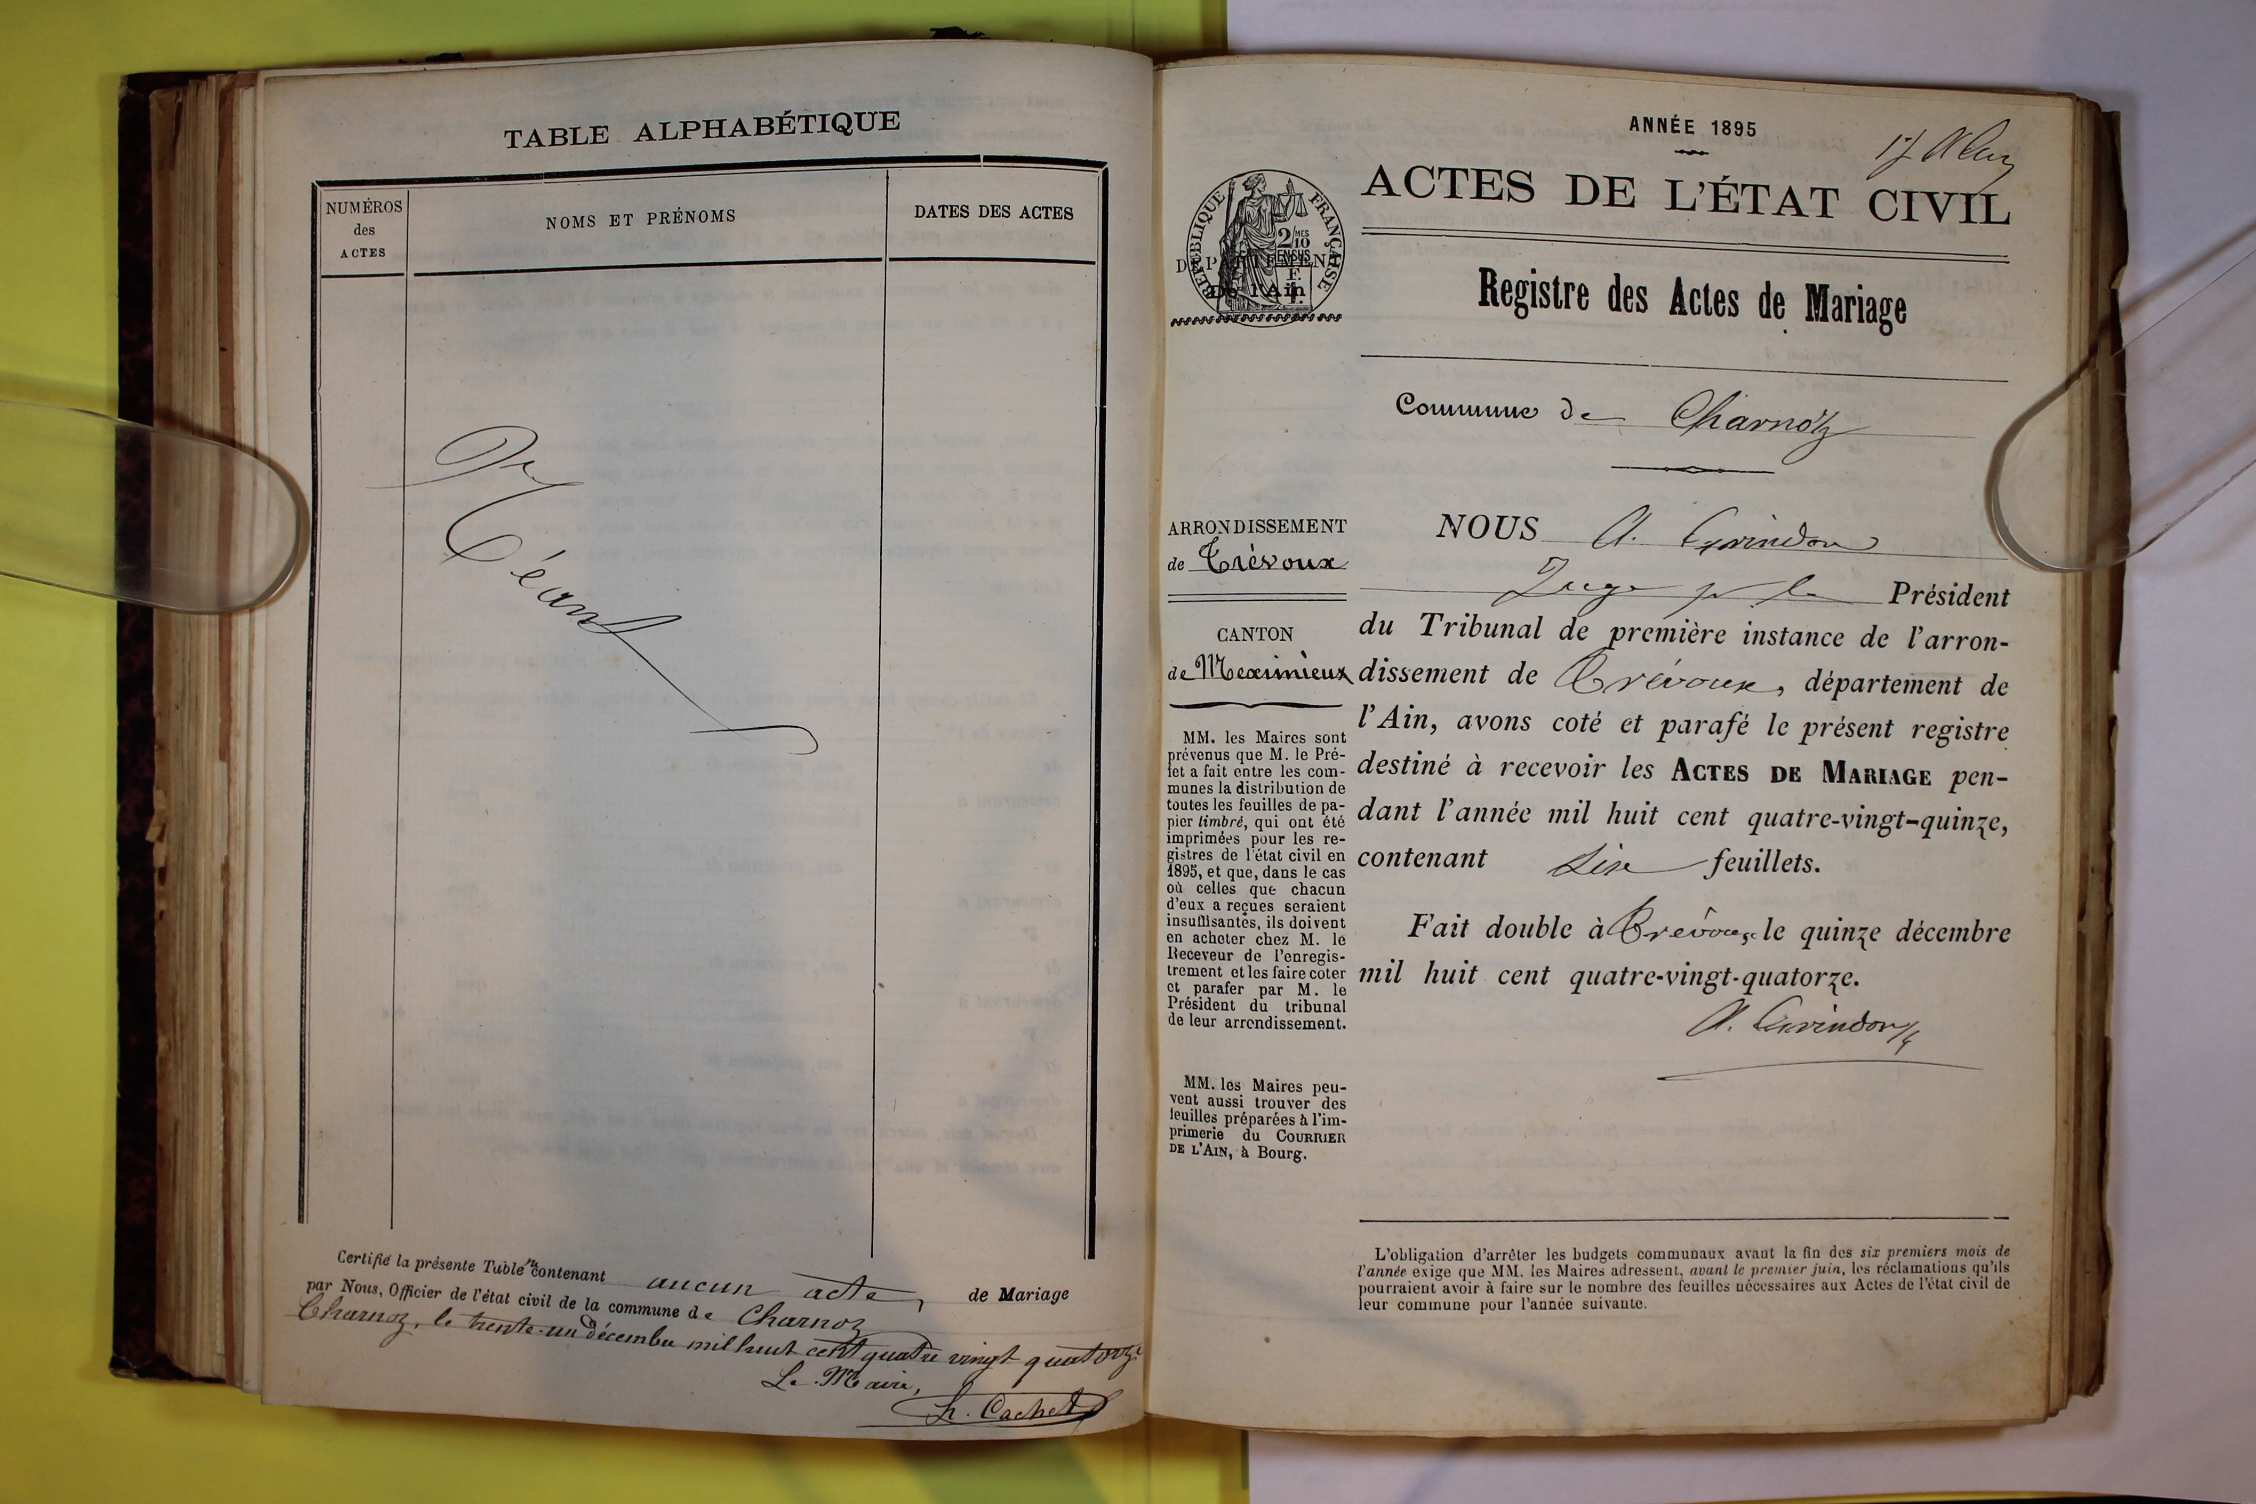 TABLE ALPHABÉTIQUE
NUMÉROS
des
ACTES
NOMS ET PRÉNOMS
DATES DES ACTES
Néant
Certifié la présente Table ne contenant aucun acte, de Mariage
par Nous, Officier de l'état civil de la commune de Charnoz
Charnoz, le trente-un décembre mil huit cent quatre vingt quatorze
Le Maire,
Cachet
ANNÉE 1895
ACTES DE L'ÉTAT CIVIL
RÉPUBLIQUE FRANÇAISE
2/10
MES
EN SUS
DÉPARTEMENT
De l'Ain
Registre des Actes de Mariage
Commune de Charnoz
ARRONDISSEMENT
de Trévoux
CANTON
de Meximieux
MM. les Maires sont
prévenus que M. le Pré-
fet a fait entre les com-
munes la distribution de
toutes les feuilles de pa-
pier timbré, qui ont été
imprimées pour les re-
gistres de l'état civil en
1895, et que, dans le cas
où celles que chacun
d'eux a reçues seraient
insuffisantes, ils doivent
en acheter chez M. le
Receveur de l'enregis-
trement et les faire coter
et parafer par M. le
Président du tribunal
de leur arrondissement.
MM. les Maires peu-
vent aussi trouver des
feuilles préparées à l'im-
primerie du COURRIER
DE L'AIN, à Bourg.
NOUS A.
Juge pr le Président
du Tribunal de première instance de l'arron-
dissement de Trévoux, département de
l'Ain, avons coté et parafé le présent registre
destiné à recevoir les ACTES DE MARIAGE pen-
dant l'année mil huit cent quatre-vingt-quinze,
contenant six feuillets.
Fait double à Trévoux, le quinze décembre
mil huit cent quatre-vingt-quatorze.
A.
L'obligation d'arrêter les budgets communaux avant la fin des six premiers mois de
l'année exige que MM. les Maires adressent, avant le premier juin, les réclamations qu'ils
pourraient avoir à faire sur le nombre des feuilles nécessaires aux Actes de l'état civil de
leur commune pour l'année suivante.